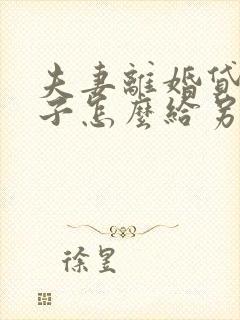 夫妻離婚貸
子怎麼給另
徐昱